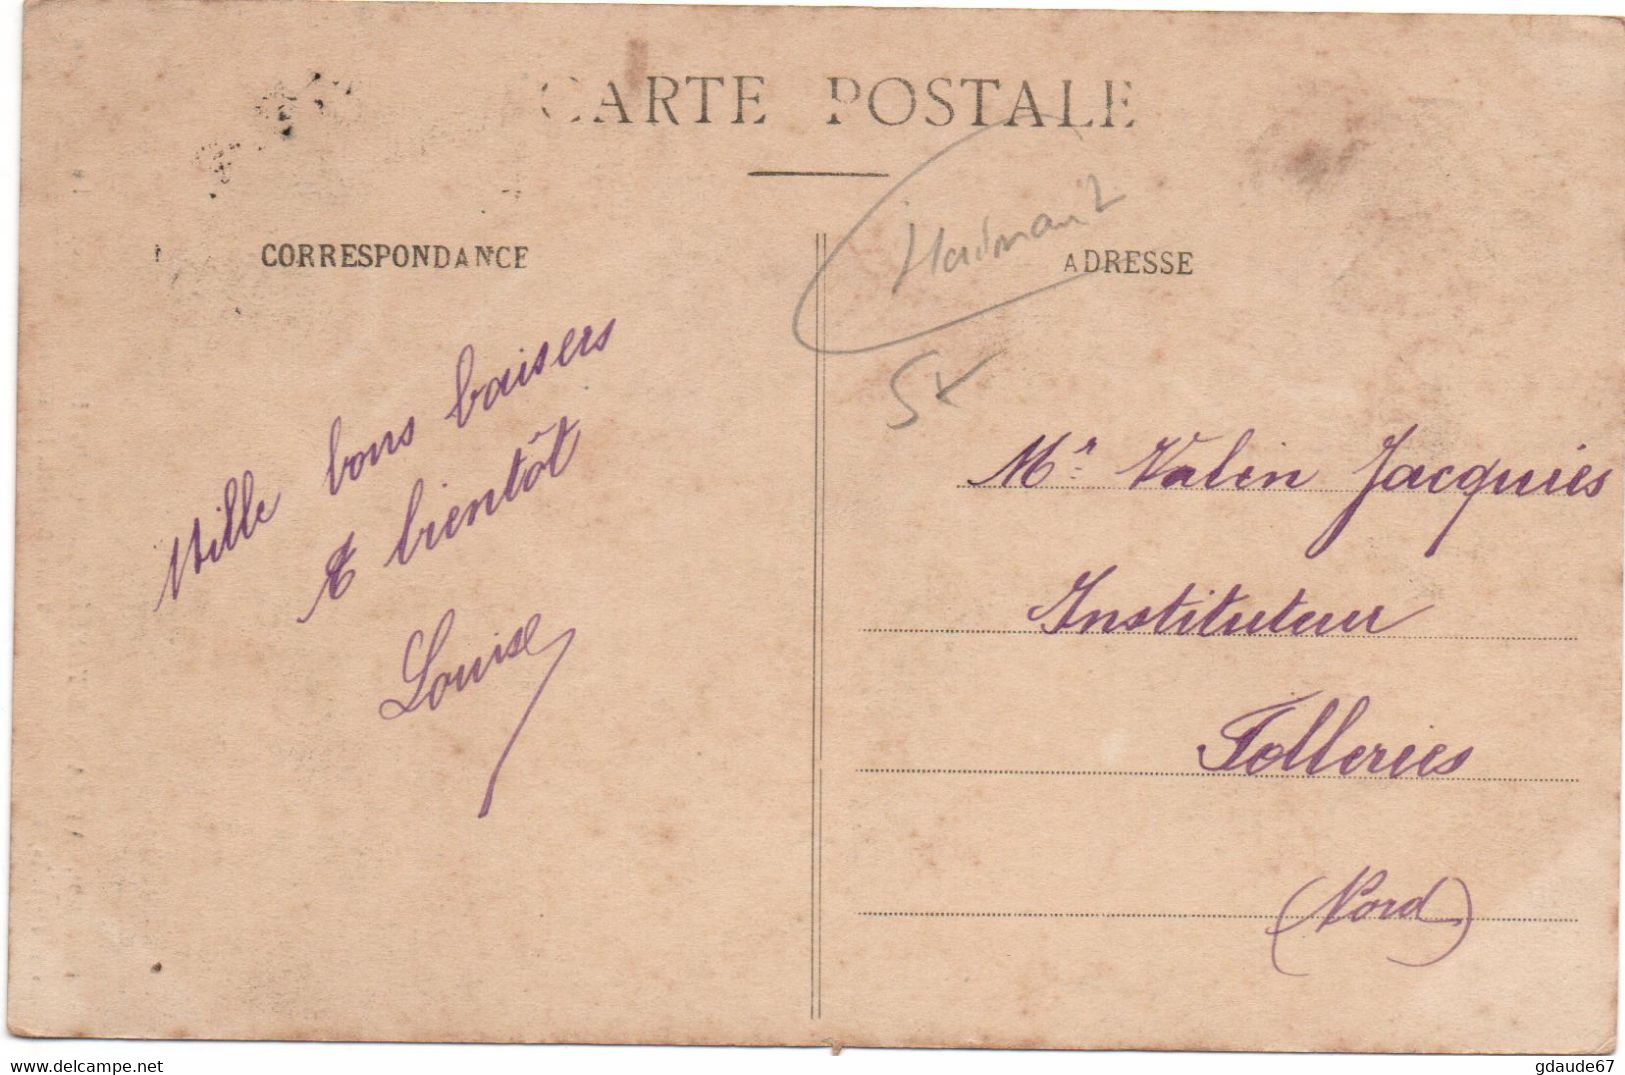 CARTE POSTALE
CORRESPONDANCE
ADRESSE
Hautmont
5
Mille bons baisers
A bientôt
Louise
Mr Valin Jacques
Instituteur
Felleries
(Nord)
delcampe.net
gdaude67